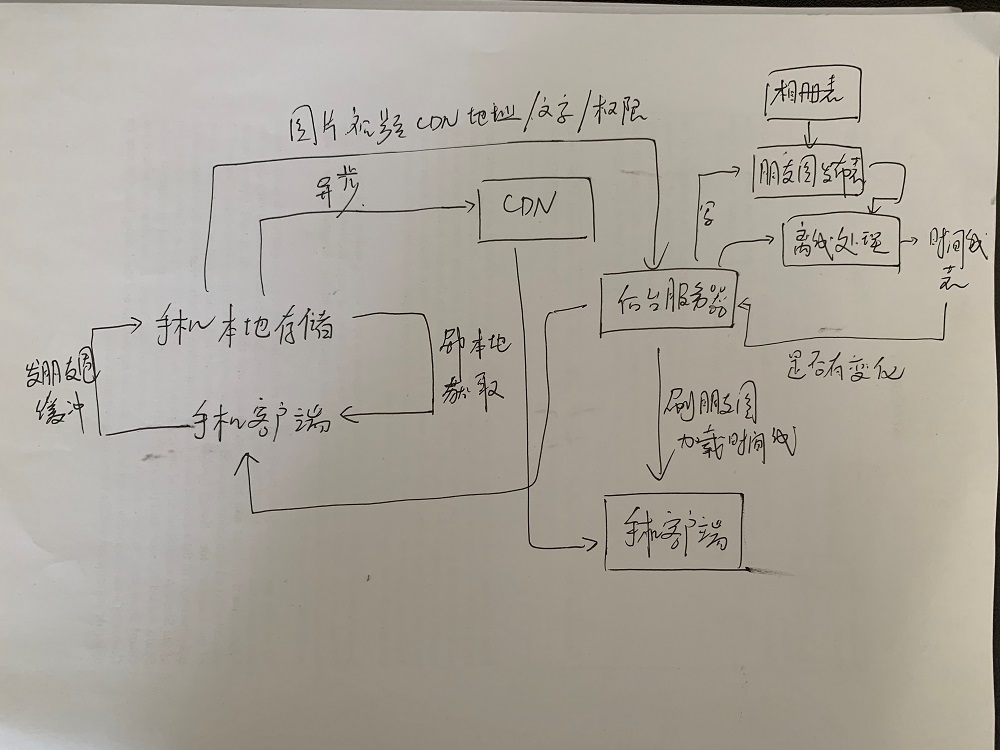 相册表
图片视频CDN地址/文字/权限
朋友圈发布表
异步
CDN
写
离线处理
时间线
表
后台服务器
手机本地存储
本地
取
发朋友圈
缓冲
是否有变化
手机客户端
刷朋友圈
加载时间线
手机客户端